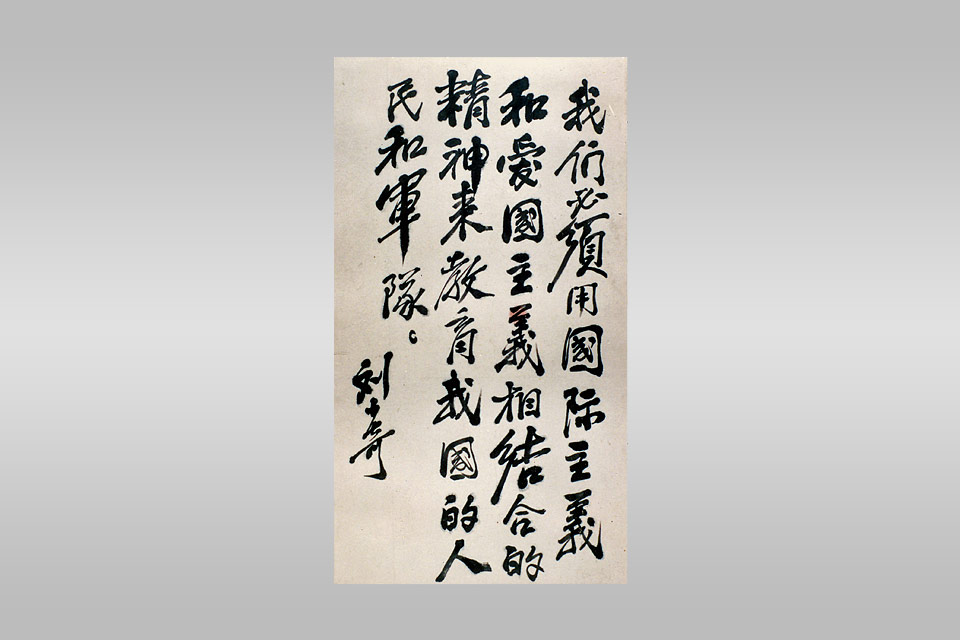 我们必須用國际主義
和愛國主義相結合的
精神来教育我國的人
民和軍隊。
刘少奇